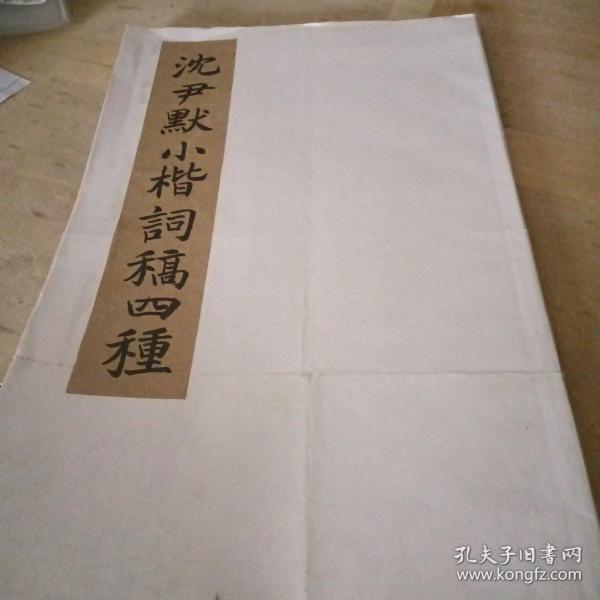 沈尹默小楷詞稿四種
孔夫子旧書网
www.kongfz.com